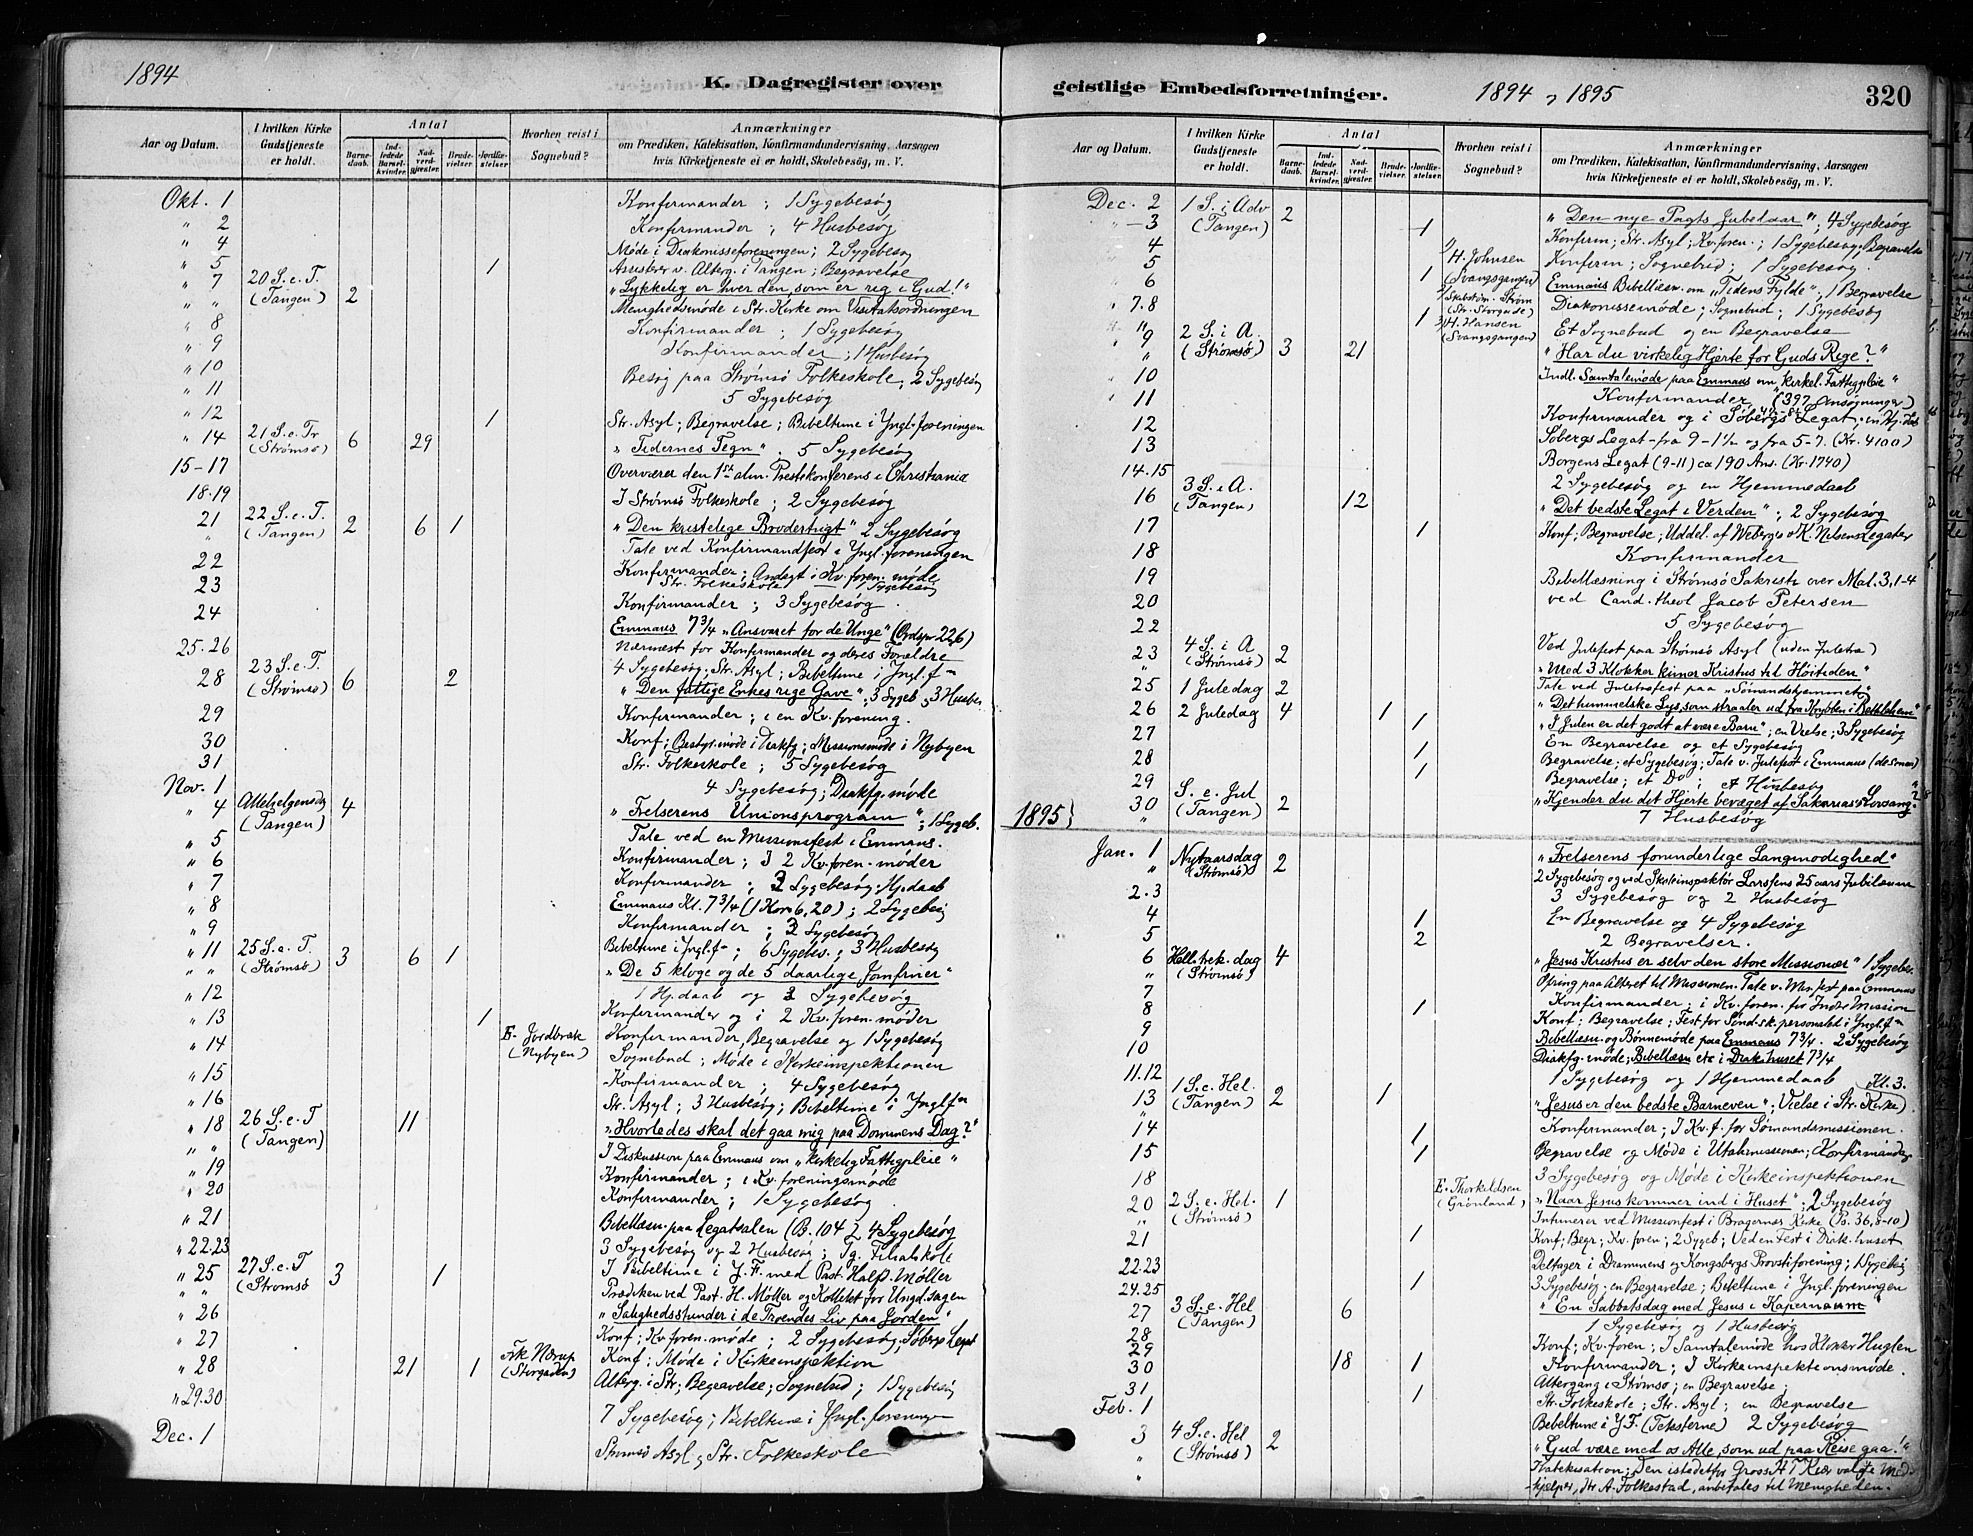 1894
K. Dagregister over
Aar og Datum.
I hvilken Kirke Gudstjeneste er holdt.
Antal
Barnedaab.
Indledede Barselkvinder.
Nadverdgjæster.
Brudevielser.
Jordfæstelser.
Hvorhen reist i Sognebud?
Anmærkninger
om Prædiken, Katekisation, Konfirmandundervisning, Aarsagen
hvis Kirketjeneste ei er holdt, Skolebesøg, m. V.
Okt. 1 Konfirmander ; 1 Sygebesøg
" 2 Konfirmander ; 4 Husbesøg
" 4 Møde i Diakonisseforeningen ; 2 Sygebesøg
" 5 1 Assisterer v. Alterg. i Tangen ; Begravelse
" 7 20 S. e. T. (Tangen) 2 "Lykkelig er hver den, som er rig i Gud!"
" " Menighedsmøde i Str. Kirke om Visitatsordningen
" 8 Konfirmander ; 1 Sygebesøg
" 9 Konfirmander ; 1 Husbesøg
" 10 Besøg paa Strømsö Folkeskole ; 2 Sygebesøg
" 11 5 Sygebesøg
" 12 1 Str. Asyl ; Begravelse ; Bibeltime i Yngl. foreningen
" 14 21 S. e. Tr (Strømsø) 6 29 "Tidernes Tegn". 5 Sygebesøg
15-17 Overværer den 1ste alm. Prestekonferens i Christiania
18-19 I Strømsö Folkeskole ; 2 Sygebesøg
21 22 S. e. T. (Tangen) 2 6 1 "Den kristelige Brodertugt" 2 Sygebesøg
" Tale ved Konfirmandfest i Yngl. foreningen
22 Konfirmander ; Andagt i Kv. foren. møde
23 Str. Folkeskole 1 Sygebesøg
24 Konfirmander ; 3 Sygebesøg
25.26 Emmaus 7 3/4 "Ansvaret for de Unge" (Ordspr 22,6)
Nærmest for Konfirmander og deres Forældre
4 Sygebesøg ; Str. Asyl ; Bibeltime i Yngl. f-
28 23 S. e. T. (Strømsö) 6 2 "Den fattige Enkes rige Gave" ; 3 Sygeb ; 3 Husbes.
29 Konfirmander ; i en Kv. forening.
30 Konf ; Bestyr. møde i Diakfg ; Missionsmøde i Nybyen
31 Str. Folkeskole ; 5 Sygebesøg
Nov. 1 4 Sygebesøg ; Diakfg. møde
" 4 Allehelgensdg (Tangen) 4 "Frelserens Unionsprogram" ; 1 Sygeb.
" 5 Tale ved en Missionsfest i Emmaus.
" 6 Konfirmander ; I 2 Kv. foren. møder
" 7 Konfirmander ; 2 Sygebesøg ; Hj. daab
" 8 Emmaus Kl. 7 3/4 (1 Kor. 6,20) ; 2 Sygebesøg
" 9 Konfirmander ; 2 Sygebesøg
" 11 25 S. e. T. (Strømsö) 3 6 1 Bibeltime i Yngl. f- ; 6 Sygebes. ; 3 Husbesøg
" " "De 5 kloge og de 5 daarlige Jomfruer"
" 12 1 Hj. daab og 2 Sygebesøg
" 13 1 Konfirmander og i 2 Kv. foren. møder
" 14 E. Jordbræk (Nybyen) Konfirmander, Begravelse og 1 Sygebesøg
" 15 Sognebud ; Møde i Kirkeinspektionen
" 16 Konfirmander ; 4 Sygebesøg
Str. Asyl ; 3 Husbesøg ; Bibeltime i Yngl. f-
" 18 26 S. e. T (Tangen) 11 "Hvorledes skal det gaa mig paa Dommens Dag?"
" " I Diskussion paa Emmaus om "kirkelig Fattigpleie"
" 19 Konfirmander ; i Kv. foreningsmøde
" 20 Konfirmander ; 1 Sygebesøg
" 21 Bibellæsn. paa Legatsalen (B. 104) 4 Sygebesøg
" 22.23 3 Sygebesøg og 2 Husbesøg ; Tg. Filialskole
" 25 27 S. e. T (Stromsö 3 1 I Bibeltime i Y. F. med Past. Half. Møller
" " Prædiken ved Past. H. Møller og Kollekt for Ungd. sagen
" 26 "Salighedsstunder i de Troendes Liv paa Jorden"
" 27 Konf ; Kv. foren. møde ; 2 Sygebesøg ; Søbergs Legat
" 28 21 1 Frk Nærup (Storgaden) Konf ; Møde i Kirkeinspektion
" 29.30 Alterg. i Str ; Begravelse ; Sognebud ; 1 Sygebesøg
7 Sygebesøg ; Bibeltime i Yngl. foreningen
Dec. 1 Strømsö Asyl og Str. Folkeskole
geistlige Embedsforretninger.
1894 og 1895
320
Aar og Datum.
I hvilken Kirke Gudstjeneste er holdt.
Antal
Barnedaab.
Indledede Barselkvinder.
Nadverdgjæster.
Brudevielser.
Jordfæstelser.
Hvorhen reist i Sognebud?
Anmærkninger
om Prædiken, Katekisation, Konfirmandundervisning, Aarsagen
hvis Kirketjeneste ei er holdt, Skolebesøg, m. V.
Dec. 2 1 S. i Adv (Tangen) 2 "Den nye Pagts Jubelaar" ; 4 Sygebesøg
" 3 1 Konfirm ; Str. Asyl ; Kv. foren. ; 1 Sygebesøg ; Begravelse
4 H. Johnsen (Svangsgangen) Konfirm ; Sognebud ; 1 Sygebesøg.
5 1 Emmaus Bibellæsn. om "Tidens Fylde" ; 1 Begravelse
6 Skibstøm. Strøm (Str. Storgade) Diakonissemøde ; Sognebud ; 1 Sygebesøg
7.8 1 H. Hansen (Svangsgangen) Et Sognebud og en Begravelse
" 9 2 S. i A. (Strømsö) 3 21 "Har du virkelig Hjerte for Guds Rige?"
" Indl. Samtalemøde paa Emmaus om "Kirkel. Fattigpleie"
10 Konfirmander (397 Ansøgninger)
11 Konfirmander og i Søbergs Legat ;
12 Søbergs Legat fra 9-1 1/2 og fra 5-7. (Kr. 4100)
13 Borgens Legat (9-11) ca 190 Ans. (Kr. 1740)
14.15 2 Sygebesøg og en Hjemmedaab
16 3 S. i A. (Tangen) 12 "Det bedste Legat i Verden" ; 2 Sygebesøg
17 1 Konf ; Begravelse ; Uddel. af Webergs o K. Nilsens Legater
18 Konfirmander
19 Bibellæsning i Strømsö Sakristi over Mal. 3, 1-4
20 ved Cand. theol Jacob Petersen
22 5 Sygebesøg
23 4 S. i A (Strømsö) 2 Ved Julefest paa Strømsö Asyl (uden Juletræ)
" "Med 3 Klokker kimer Kristus til Høitiden"
Tale ved Juletræfest paa "Sømandshjemmet"
25 1 Juledag 2 "Det himmelske Lys, som straaler ud fra Krybben i Bethlehem"
26 2 Juledag 4 1 1 "I Julen er det godt at være Barn" ; en Vielse ; 3 Sygebesøg
27 En Begravelse og et Sygebesøg
28 1 Begravelse ; et Sygebesøg ; Tale v. Julefest i Emmaus
29 1 Begravelse ; et Do ; et Husbesøg
30 S. e. Jul (Tangen) 2 "Kjender du det Hjerte bevæget af Sakarias Lovsang?"
" 7 Husbesøg
1895}
Jan. 1 Nytaarsdag (Strømsö) 2 "Frelserens forunderlige Langmodighed"
" 2 Sygebesøg og ved Skoleinspektør Larssens 25 aars Jubilæum
2.3 3 Sygebesøg og 2 Husbesøg
4 1 En Begravelse og 4 Sygebesøg
5 2 2 Begravelser.
6 Hell. trek. dag (Strømsö) 4 "Jesus Kristus er selv den store Missionær" 1 Sygebes.
" Ofring paa Alteret til Missionen. Tale v. Mis. fest paa Emmaus
7 Konfirmander ; i Kv. foren. for Indre Mission
8 1 Konf ; Begravelse ; Fest for Sønd. sk. personalet i Yngl. f-
9 Bibellæsn. og Bønnemøde paa Emmaus 7 3/4. 2 Sygebesøg
10 Diakfg. møde ; Bibellæsn etc i Diak. huset 7 3/4
11.12 1 Sygebesøg og 1 Hjemmedaab Kl. 3.
13 1 S. e. Hel. (Tangen) 2 1 "Jesus er den bedste Barneven" ; Vielse i Str. Kirke)
14 1 Konfirmander ; I Kv. f. for Sømandsmissionen.
15 1 Begravelse og Møde i Utahmissionen ; Konfirmander
18 E. Thorkildsen (Grønland) 3 Sygebesøg og Møde i Kirkeinspektionen
20 2 S. e. Hel. (Strømsö) 1 "Naar Jesus kommer ind i Huset" ; 2 Sygebesøg
" Intimerer ved Missionfest i Bragernæs Kirke (Ps. 36, 8-10)
21 1 Konf ; Begr ; Kv. foren ; 2 Sygeb ; Ved en Fest i Diak. huset
22.23 Deltager i Drammens og Kongsbergs Provstiforening ; 1 Sygebesøg
24.25 1 3 Sygebesøg ; en Begravelse ; Bibeltime i Yngl. foreningen
27 3 S. e. Hel (Tangen) 6 "En Sabbatsdag med Jesus i Kapernaum"
28 1 Sygebesøg og 1 Husbesøg
29 Konf ; Kv. foren ; I Samtalemøde hos Klokker Huglen
30 18 1 Konfirmander ; I Kirkeinspektionsmøde
31 1 Altergang i Strømsø ; en Begravelse ;
Feb. 1 Str. Folkeskole ; Str. Asyl ; en Begravelse
Bibeltime i Y. F. (Teksterne) 2 Sygebesøg
3 4 S. e. Hel (Strømsö) 2 "Gud være med os Alle, som ud paa Reise gaa!"
" Katekisation ; Den istedetfor Gross. H T Kiær valgte Med-
" hjælper, Hr A. Folkestad, anbefales til Menigheden.